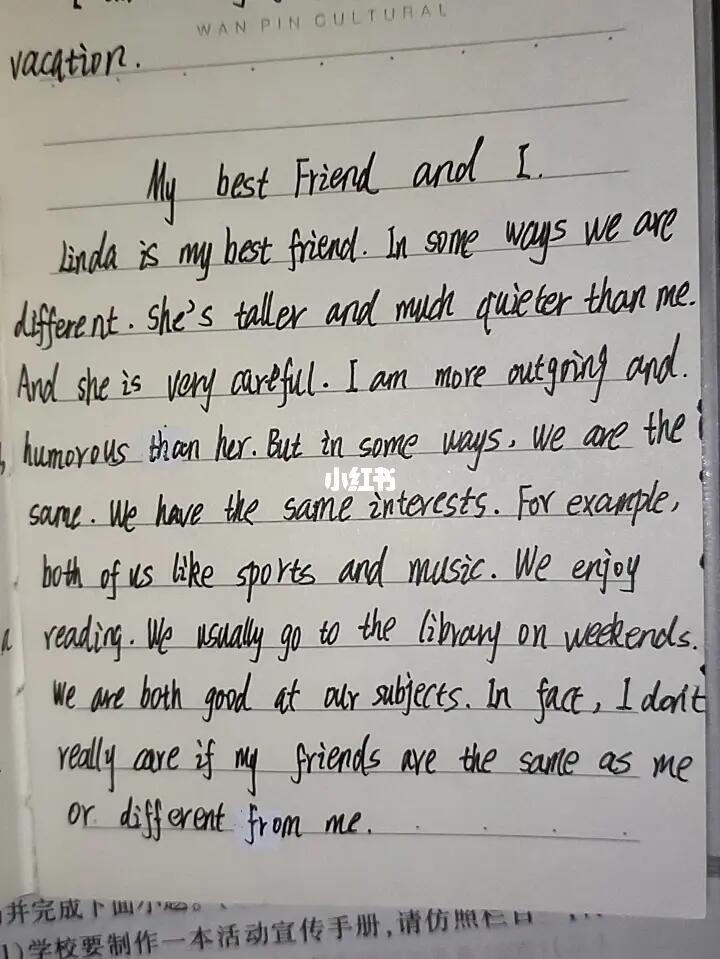 WAN PIN CULTURAL
vacation.
My best Friend and I.
Linda is my best friend. In some ways we are
different. She's taller and much quieter than me.
And she is very careful. I am more outgoing and.
humorous than her. But in some ways, we are the
小红书
same. We have the same interests. For example,
both of us like sports and music. We enjoy
reading. We usually go to the library on weekends.
We are both good at our subjects. In fact, I don't
really care if my friends are the same as me
or different from me.
并完成下面小题。
1)学校要制作一本活动宣传手册,请仿照栏目一